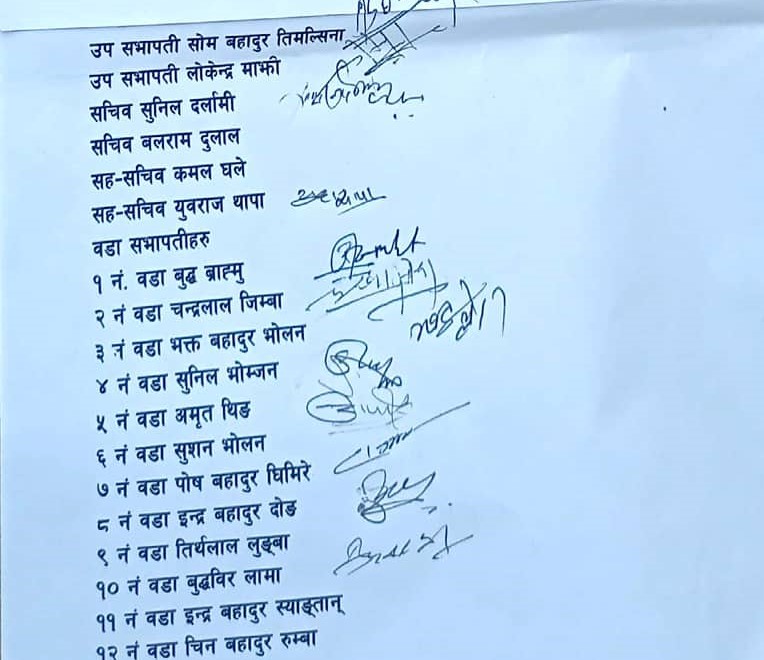 उप सभापती सोम बहादुर तिमल्सिना
उप सभापती लोकेन्द्र माझी
सचिव सुनिल दर्लामी
सचिव बलराम दुलाल
सह-सचिव कमल घले
सह-सचिव युवराज थापा
वडा सभापतीहरु
१ नं. वडा बुद्ध ब्राह्मु
२ नं वडा चन्द्रलाल जिम्बा
३ नं वडा भक्त बहादुर भोलन
४ नं वडा सुनिल भोम्जन
५ नं वडा अमृत थिङ
६ नं वडा सुशन भोलन
७ नं वडा पोष बहादुर घिमिरे
८ नं वडा इन्द्र बहादुर दोङ
९ नं वडा तिर्थलाल लुङ्बा
१० नं वडा बुद्धविर लामा
११ नं वडा इन्द्र बहादुर स्याङ्तान्
१२ नं वडा चिन बहादुर रुम्बा